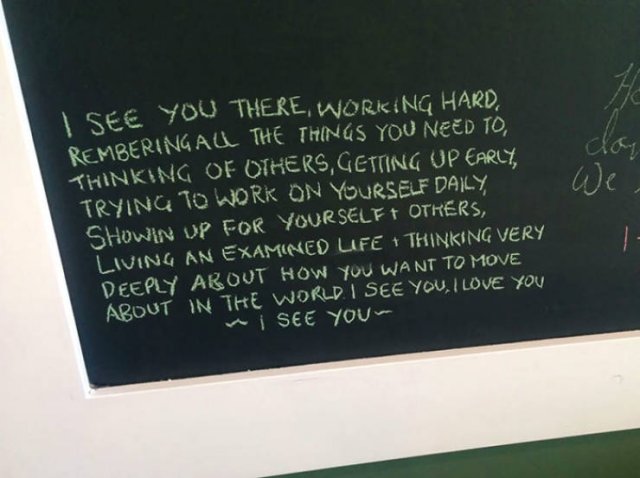 I SEE YOU THERE, WORKING HARD,
REMBERING ALL THE THINGS YOU NEED TO,
THINKING OF OTHERS, GETTING UP EARLY,
TRYING TO WORK ON YOURSELF DAILY,
SHOWIN UP FOR YOURSELF + OTHERS,
LIVING AN EXAMINED LIFE + THINKING VERY
DEEPLY ABOUT HOW YOU WANT TO MOVE
ABOUT IN THE WORLD. I SEE YOU, I LOVE YOU
~ I SEE YOU ~
We